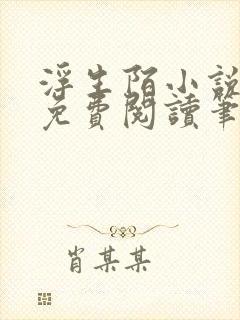 浮生陌小說
免費閱讀筆
肖某某